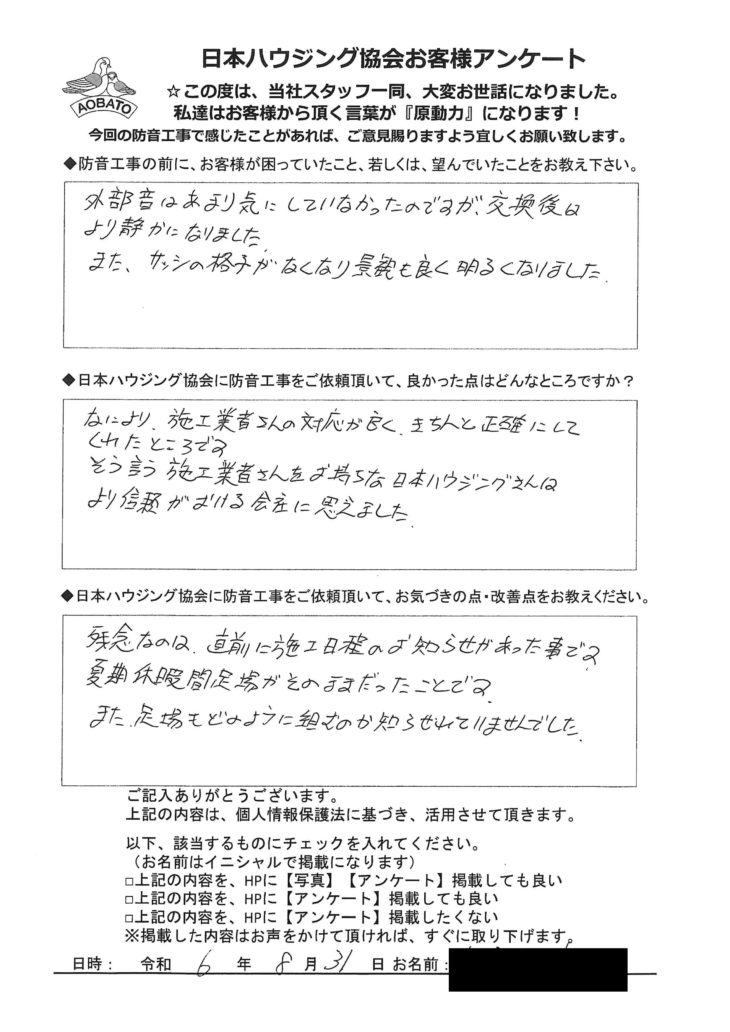 日本ハウジング協会お客様アンケート
AOBATO
☆この度は、当社スタッフ一同、大変お世話になりました。
私達はお客様から頂く言葉が『原動力』になります！
今回の防音工事で感じたことがあれば、ご意見賜りますよう宜しくお願い致します。
◆防音工事の前に、お客様が困っていたこと、若しくは、望んでいたことをお教え下さい。
外部音はあまり気にしていなかったのですが、交換後は
より静かになりました。
また、サッシの格子がなくなり景観も良く明るくなりました。
◆日本ハウジング協会に防音工事をご依頼頂いて、良かった点はどんなところですか？
なにより、施工業者さんの対応が良く、きちんと正確にして
くれたところです
そう言う施工業者さんをお持ちな日本ハウジングさんは
より信頼がおける会社に思えました。
◆日本ハウジング協会に防音工事をご依頼頂いて、お気づきの点・改善点をお教えください。
残念なのは、直前に施工日程のお知らせがあった事です
夏期休暇間足場がそのままだったことです
また、足場もどのように組むのか知らせれていませんでした。
ご記入ありがとうございます。
上記の内容は、個人情報保護法に基づき、活用させて頂きます。
以下、該当するものにチェックを入れてください。
（お名前はイニシャルで掲載になります）
□上記の内容を、HPに【写真】【アンケート】掲載しても良い
□上記の内容を、HPに【アンケート】掲載しても良い
□上記の内容を、HPに【アンケート】掲載したくない
※掲載した内容はお声をかけて頂ければ、すぐに取り下げます。
日時： 令和 6 年 8 月 31 日 お名前：